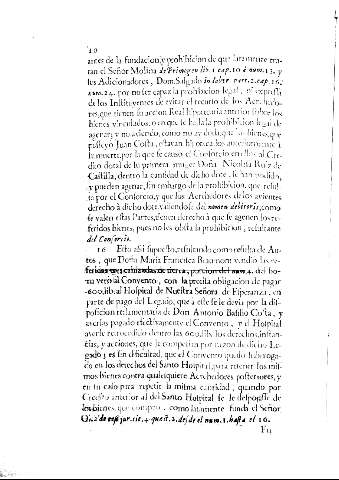 10
antes de la fundacion, y prohibicion de que latamente tra-
tan el Señor Molina de Primogen. lib. 1. cap. 10. à num. 13. y
los Adicionadores, Dom. Salgado in labyr. part. 2. cap. 16.
num. 24. por no ser capaz la prohibicion legal, ni expressa
de los Instituyentes de evitar el recurso de los Acrehedo-
res, que tienen su accion Real hipotecaria anterior sobre los
bienes vinculados, o entre quienes se halla la prohibicion legal de
agenar; y no aviendo, como no ay duda, que los bienes, que
possseyò Juan Costa, estavan hipotecados anteriormente à
la muerte, por la que se causò el Consorcio en ellos al Cre-
dito dotal de la primera muger Doña Nicolasa Ruiz de
Castilla, dentro la cantidad de dicho dote, se han podido,
y pueden agenar, sin embargo de la prohibicion, que resul-
ta por el Consorcio, y que los Acrehedores de los avientes
derecho à dicho dote valiendose del nomen debitoris, como
se valen estas Partes, tienen derecho à que se agenen los re-
feridos bienes, pues no les obsta la prohibicion, resultante
del Consorcio.
16 Esto assi supuesto, resultando como resulta de Au-
tos, que Doña Maria Francisca Beaumont vendiò las re-
feridas tres cahizadas de tierra, porcion del num. 4. del ho-
nuverò al Convento, con la precisa obligacion de pagar
600. lib. al Hospital de Nuestra Señora de Esperanza, en
parte de pago del Legado, que à este se le devia por la dis-
posicion testamentaria de Don Antonio Basilio Costa, y
averlos pagado efectivamente el Convento, y el Hospital
averle retrocedido contra las 600. lib. los derechos, instan-
cias, y acciones, que le competian por razon de dicho Le-
gado; es sin dificultad, que el Convento quedò subroga-
do en los derechos del Santo Hospital, para retener los mis-
mos bienes contra qualesquiere Acrehedores posteriores, y
en su caso para repetir la misma cantidad, quando por
Credito anterior al del Santo Hospital se le despojasse de
los bienes, que comprò, como latamente funda el Señor
Olea de cess. jur. tit. 4. quæst. 2. desde el num. 3. hasta el 10.
Fia